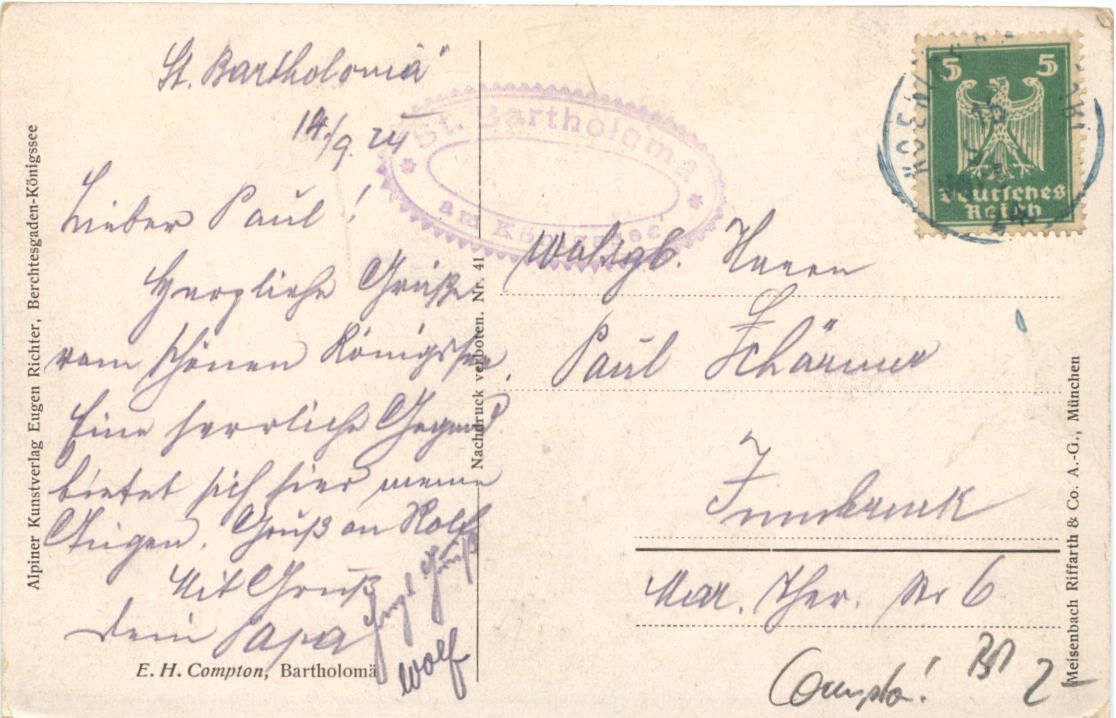 St. Bartholomä
14./9. 24
Lieber Paul!
Herzliche Grüße
vom schönen Königssee.
Eine herrliche Gegend
bietet sich hier meinen
Augen. Gruß an Rolf
Mit Gruß
Dein Papa
Gruß
Wolf
E. H. Compton, Bartholomä
Alpiner Kunstverlag Eugen Richter, Berchtesgaden-Königssee
Nachdruck verboten. Nr. 41
St. Bartholomä
am Königssee
5 5
Deutsches
Reich
Wohlgb. Herrn
Paul Schärmer
Innsbruck
Mar. Ther. Str 6
Meisenbach Riffarth & Co. A.-G., München
Compton!
2-